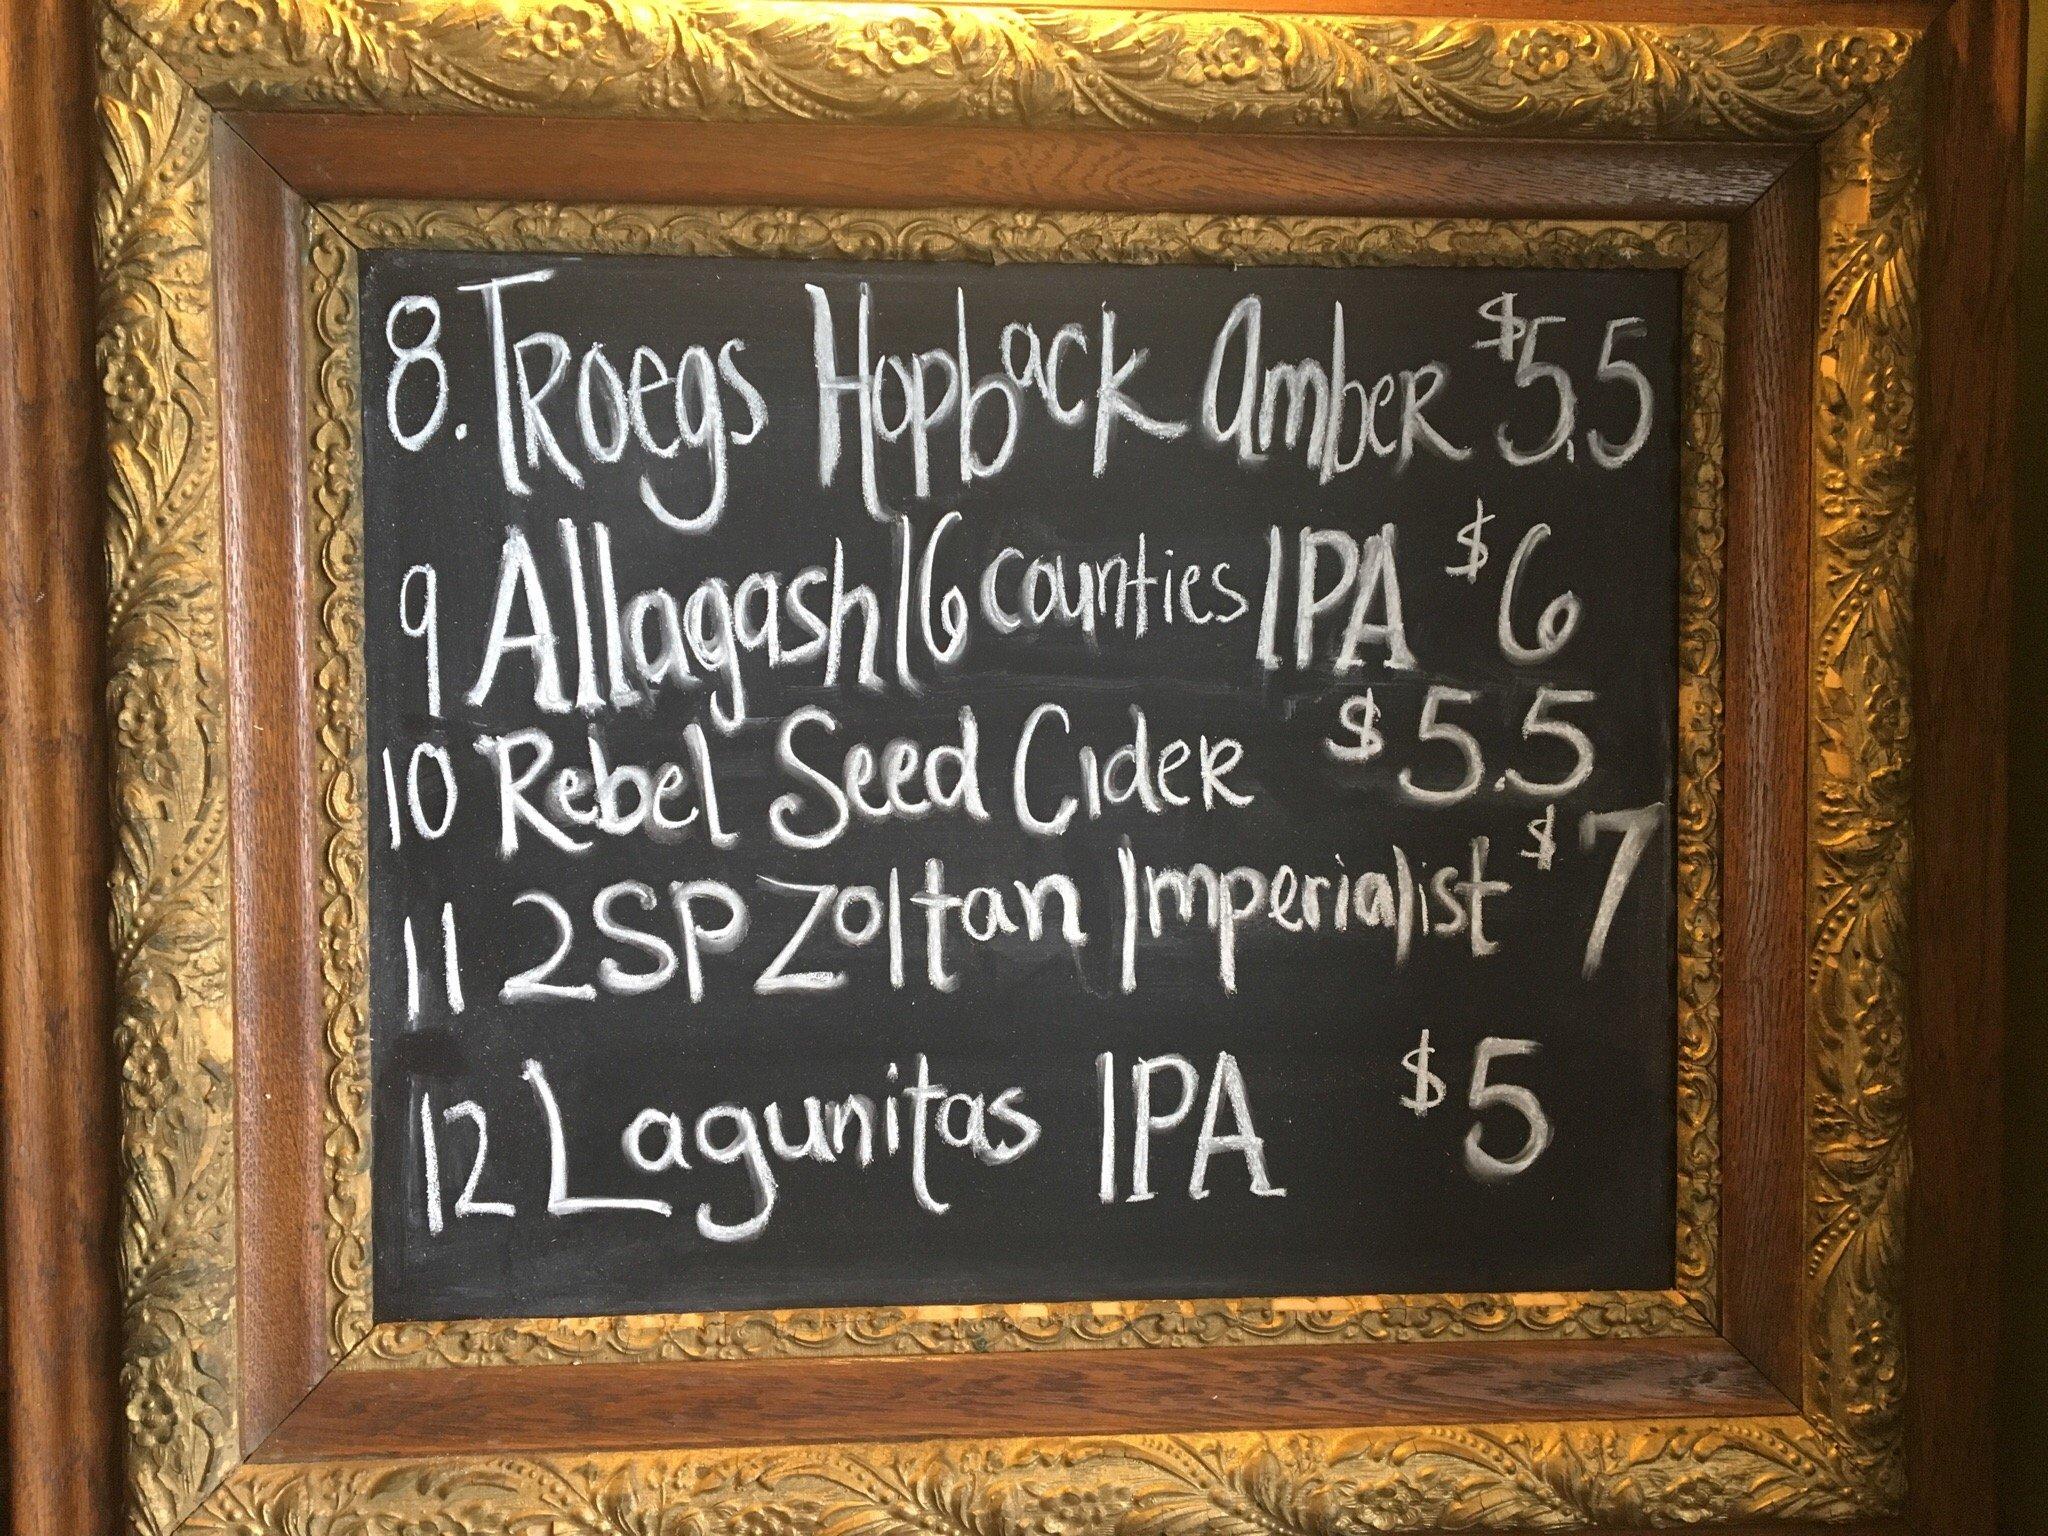 8. Troegs Hopback Amber $5.5
9 Allagash 16 counties IPA $6
10 Rebel Seed Cider $5.5
11 2SP Zoltan Imperialist $7
12 Lagunitas IPA $5